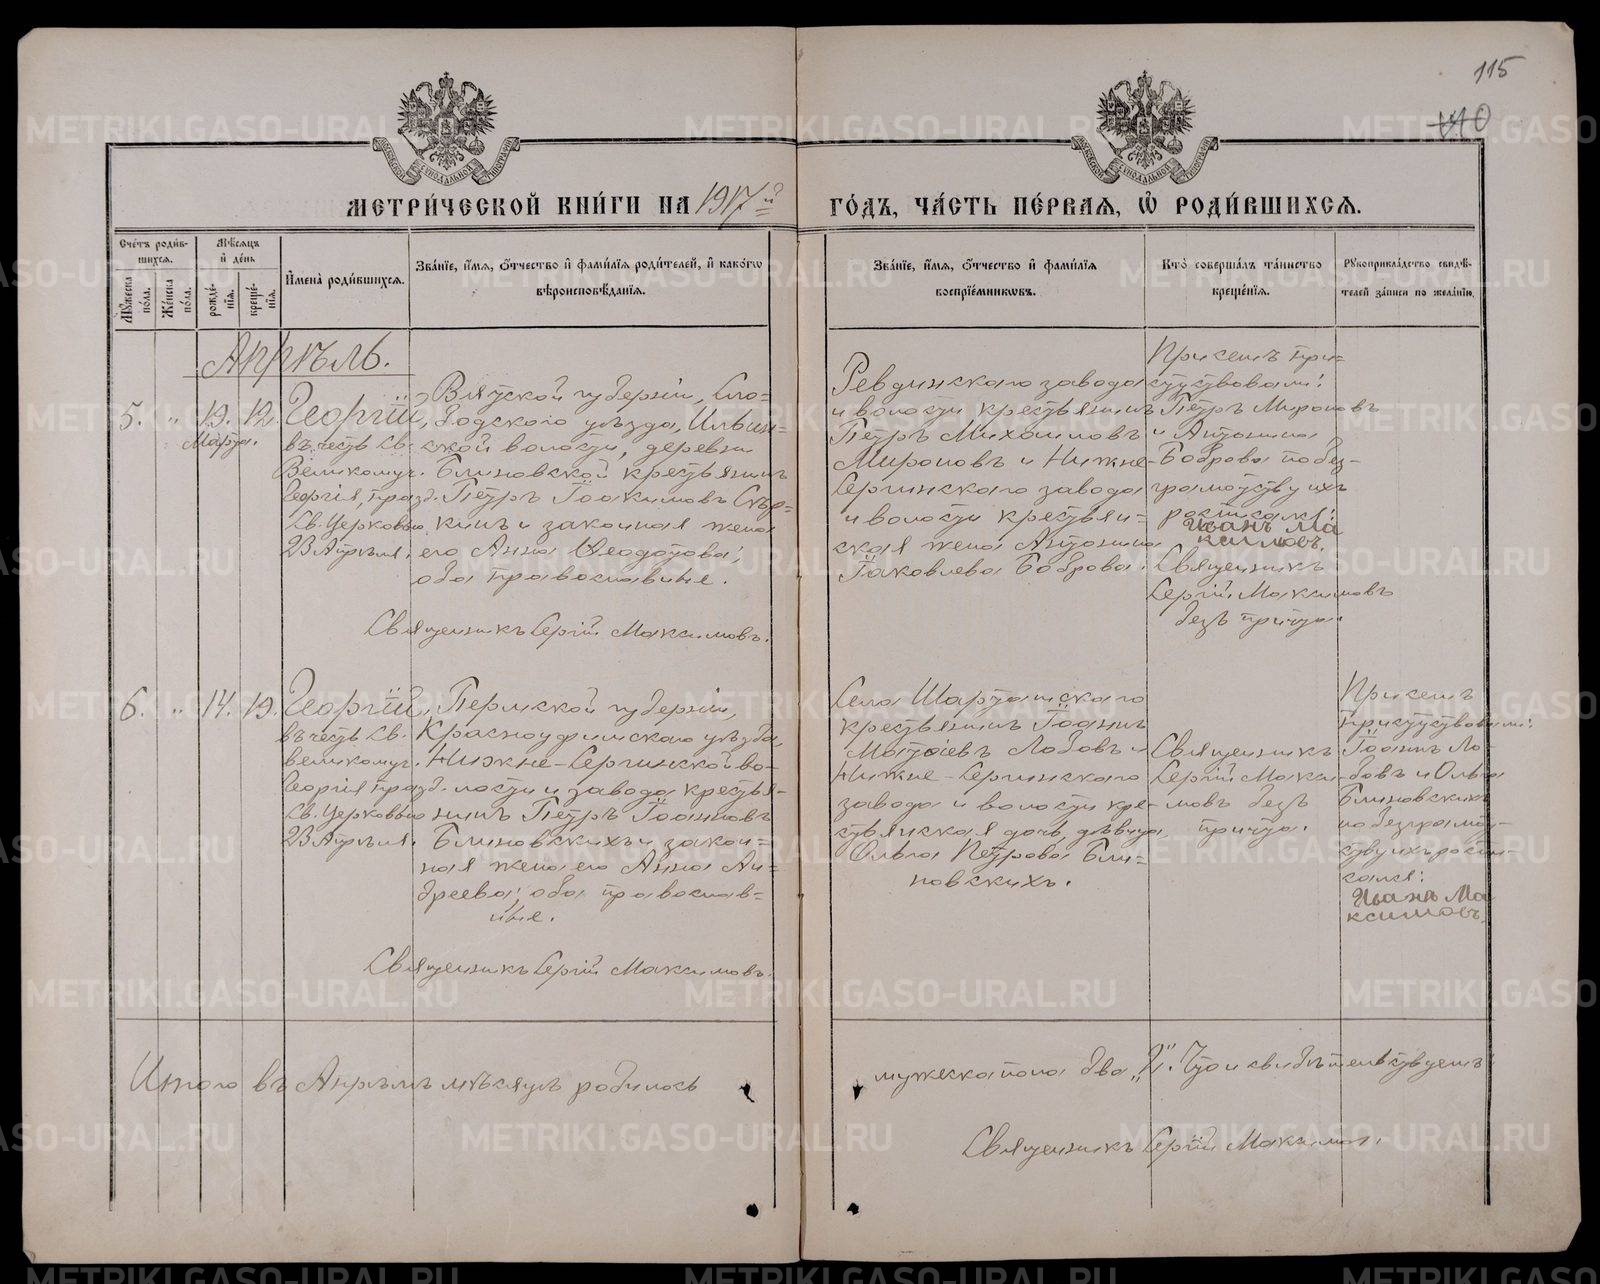 115
110
МЕТРИ́ЧЕСКОЙ КНИ́ГИ НА 1917й ГО́ДЪ, ЧА́СТЬ ПЕ́РВАЯ, Ѡ҆ РОДИ́ВШИХСЯ.
Сче́тъ роди́в-
шихся.
Мꙋ́жеска по́ла.
Же́нска по́ла.
Мѣ́сяцъ
и҆ де́нь
рожде́-
нїя.
креще́-
нїя.
И҆мена̀ роди́вшихся.
Зва́нїе, и҆́мя, ѻ҆́тчество и҆ фами́лїя роди́телей, и҆ како́гѡ
вѣроисповѣ́данїя.
Зва́нїе, и҆́мя, ѻ҆́тчество и҆ фами́лїя
воспрїе́мниковъ.
Кто̀ соверша́лъ та́инство
креще́нїя.
Рꙋкоприкла́дство свидѣ́-
телей за́писи по жела́нїю.
Апрѣль.
5.
"
19.
Марта.
12.
Георгій,
въ честь Св.
Великомуч.
Георгія, празд.
Св. Церковью
23 Апрѣля.
Вятской губерніи, Сло-
бодского уѣзда, Ильин-
ской волости, деревни
Блиновской крестьянинъ
Петръ Іоакимовъ
кинъ и законная жена
его Анна Ѳеодотова;
оба православные.
Священникъ Сергій Максимовъ.
Ревдинскаго завода
и волости крестьянинъ
Петръ Михаиловъ
Мироновъ и Нижне-
Сергинскаго завода
и волости крестьян-
ская жена Антонина
Іаковлева Боброва.
При семъ при-
сутствовали:
Петръ Мироновъ
и Антонина
Боброва по без-
грамотству ихъ
росписался:
Иванъ Ма
ксимовъ.
Священникъ
Сергій Максимовъ
безъ причта.
6.
"
14.
19.
Георгій,
въ честь Св.
великомуч.
Георгія празд.
Св. Церковью
23 Апрѣля.
Пермской губерніи,
Красноуфимскаго уѣзда,
Нижне-Сергинской во-
лости и завода крестья-
нинъ Петръ Іоанновъ
Блиновскихъ и закон-
ная жена его Анна Ан-
дреева; оба православ-
ные.
Священникъ Сергій Максимовъ.
Села Шарташскаго
крестьянинъ Іоаннъ
Матѳіевъ Лобовъ и
Нижне-Сергинскаго
завода и волости кре-
стьянская дочь, дѣвица
Ольга Петрова Бли-
новскихъ.
Священникъ
Сергій Макси-
мовъ безъ
причта.
При семъ
присутствовали:
Іоаннъ Ло-
бовъ и Ольга
Блиновскихъ
по безграмот-
ству ихъ роспи-
сался:
Иванъ Ма
ксимовъ.
Итого въ Апрѣлѣ мѣсяцѣ родилось
мужеска пола два „2". Что и свидѣтельствуетъ
Священникъ Сергій Максимовъ.
METRIKI.GASO-URAL.RU